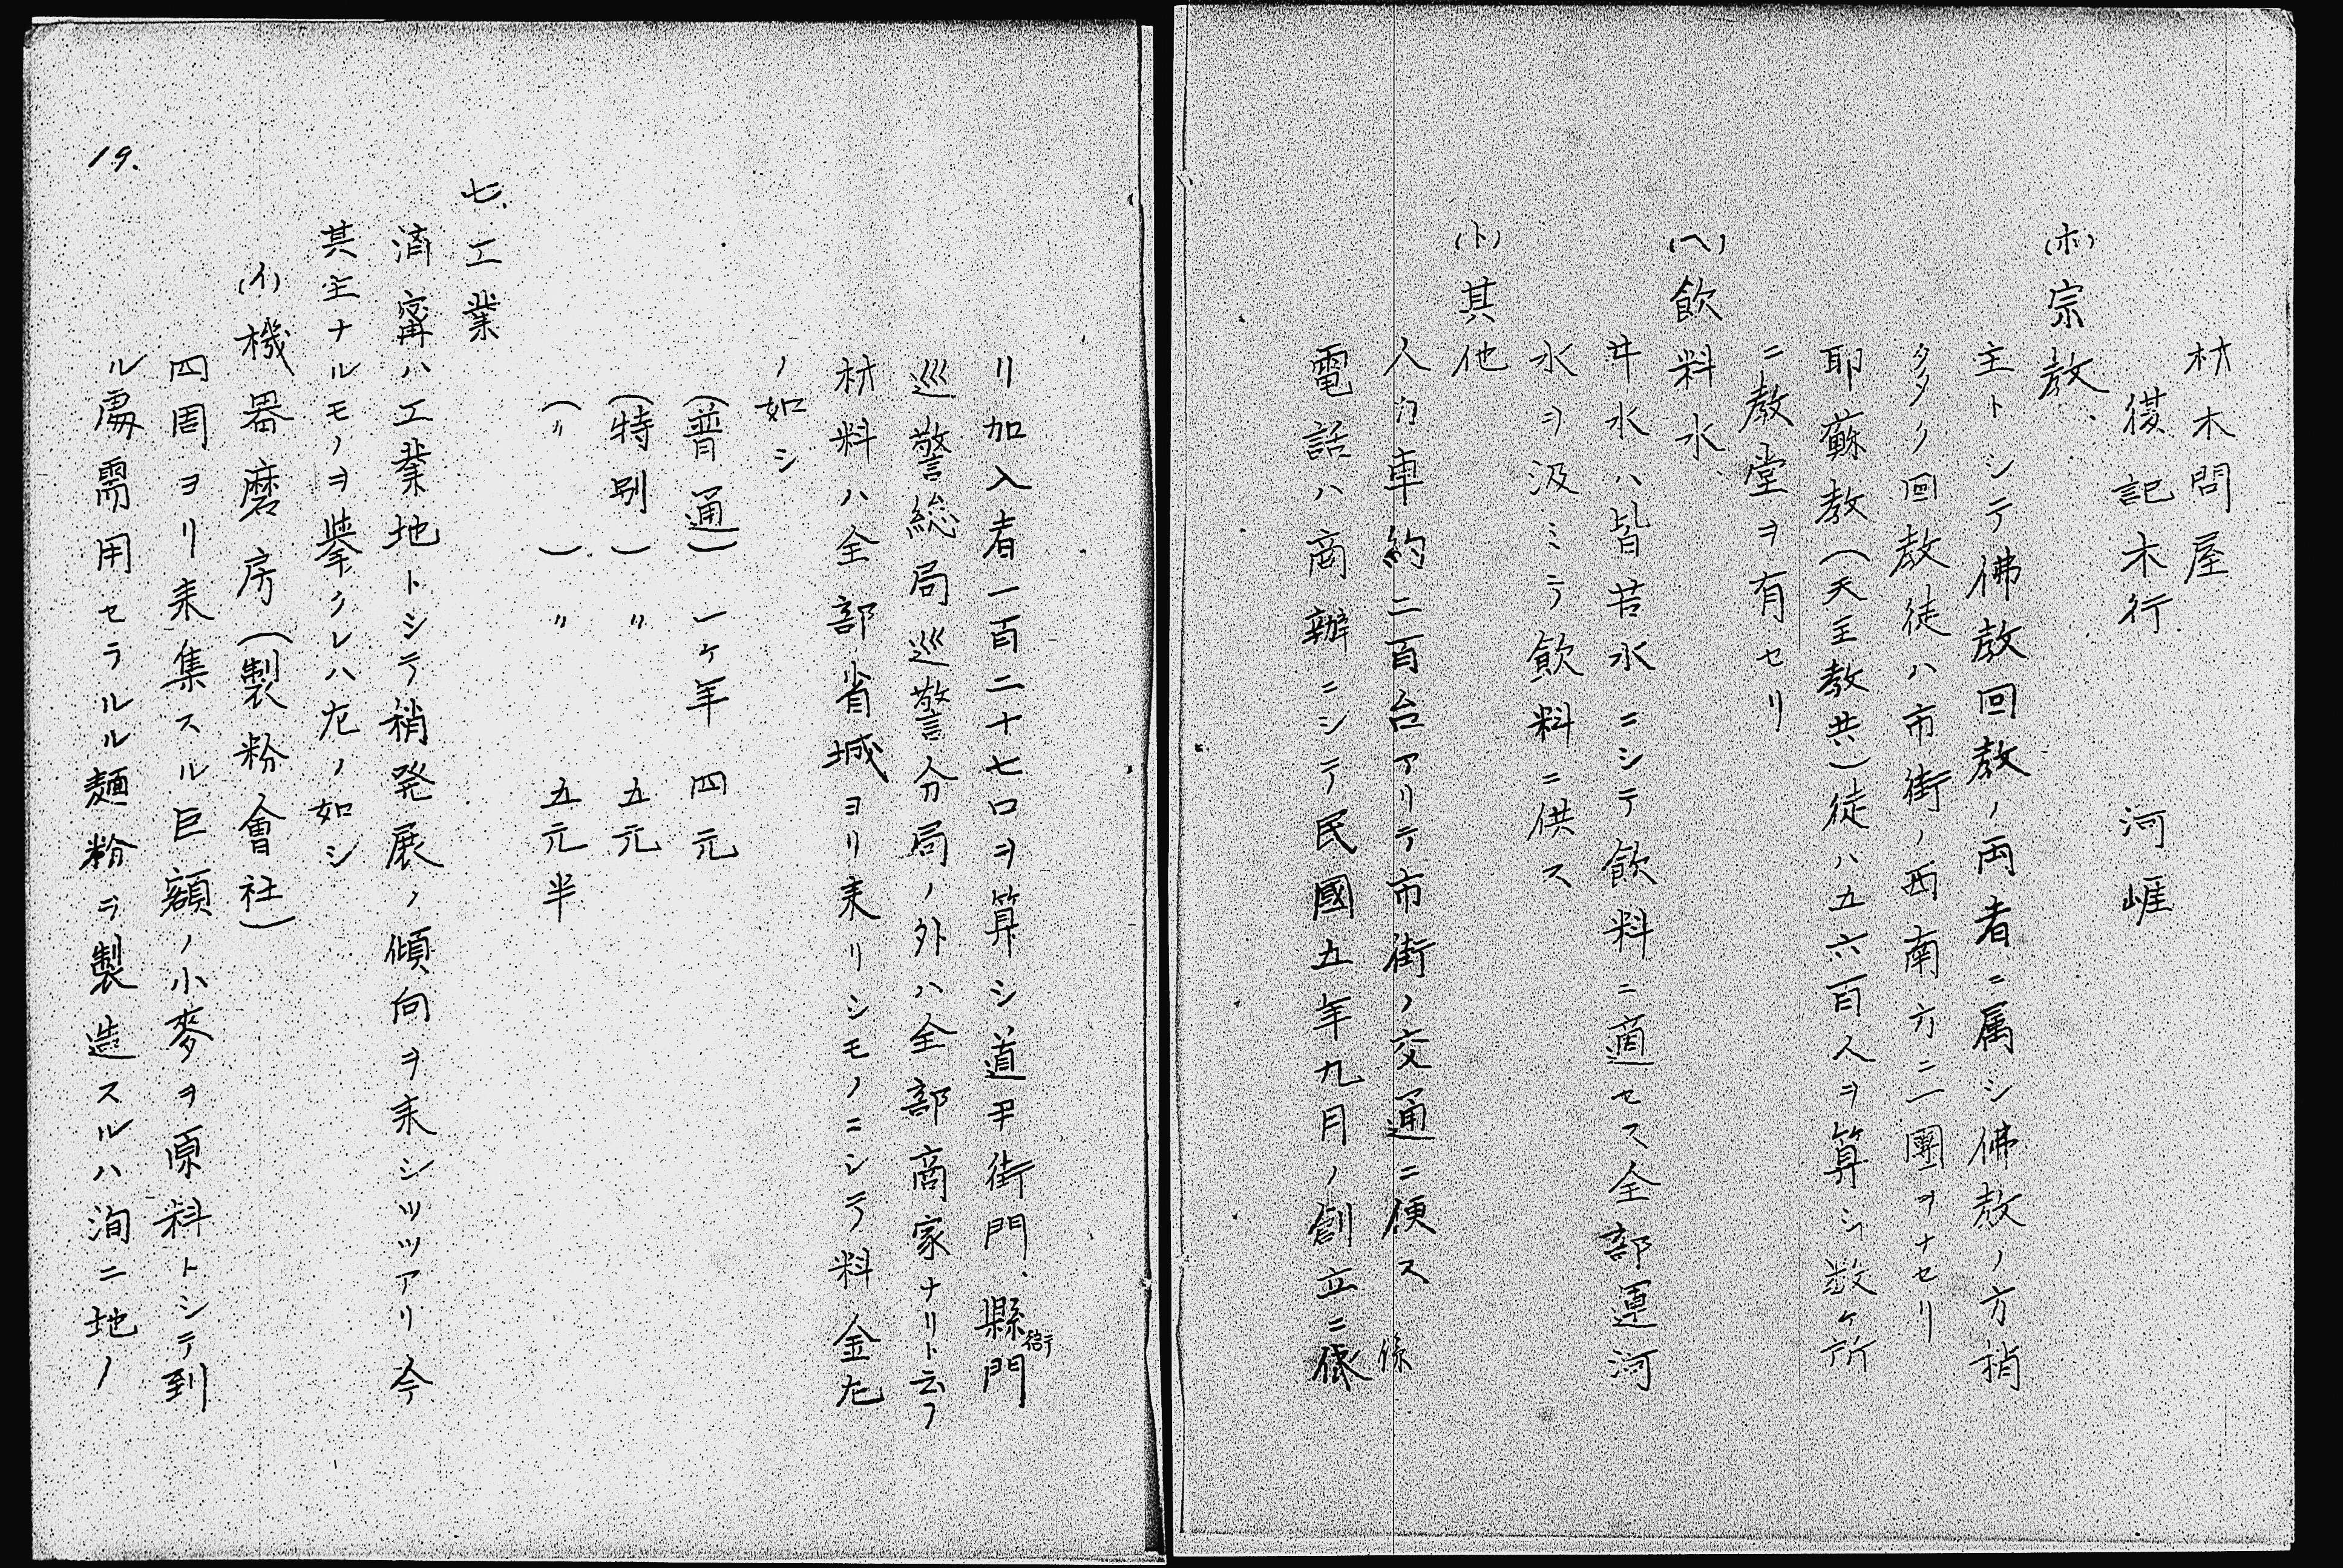 材木問屋
䅣記木行 河崕
(ホ)宗教、
主トシテ佛教回教ノ両者ニ属シ佛教ノ方稍
多ク回教徒ハ市街ノ西南方ニ一團ヲナセリ
耶蘇教(天主教共)徒ハ五六百人ヲ算シ数ヶ所
ニ教堂ヲ有セリ
(ヘ)飲料水、
井水ハ皆苦水ニシテ飲料ニ適セス全部運河
水ヲ汲ミテ飲料ニ供ス
(ト)其他
人力車約二百台アリテ市街ノ交通ニ便ス
電話ハ商辦ニシテ民國五年九月ノ創立ニ係
リ加入者一百二十七口ヲ算シ道尹街門、縣衙門
巡警総局巡警分局ノ外ハ全部商家ナリト云フ
材料ハ全部省城ヨリ来リシモノニシテ料金左
ノ如シ
(普通)一ヶ年 四元
(特別) 〃 五元
(〃 ) 〃 五元半
七、工業
済寧ハ工業地トシテ稍発展ノ傾向ヲ来シツツアリ今
其主ナルモノヲ挙クレハ左ノ如シ
(イ)機器磨房(製粉會社)
四周ヨリ来集スル巨額ノ小麥ヲ原料トシテ到
ル處需用セラルル麺粉ヲ製造スルハ洵ニ地ノ
19.